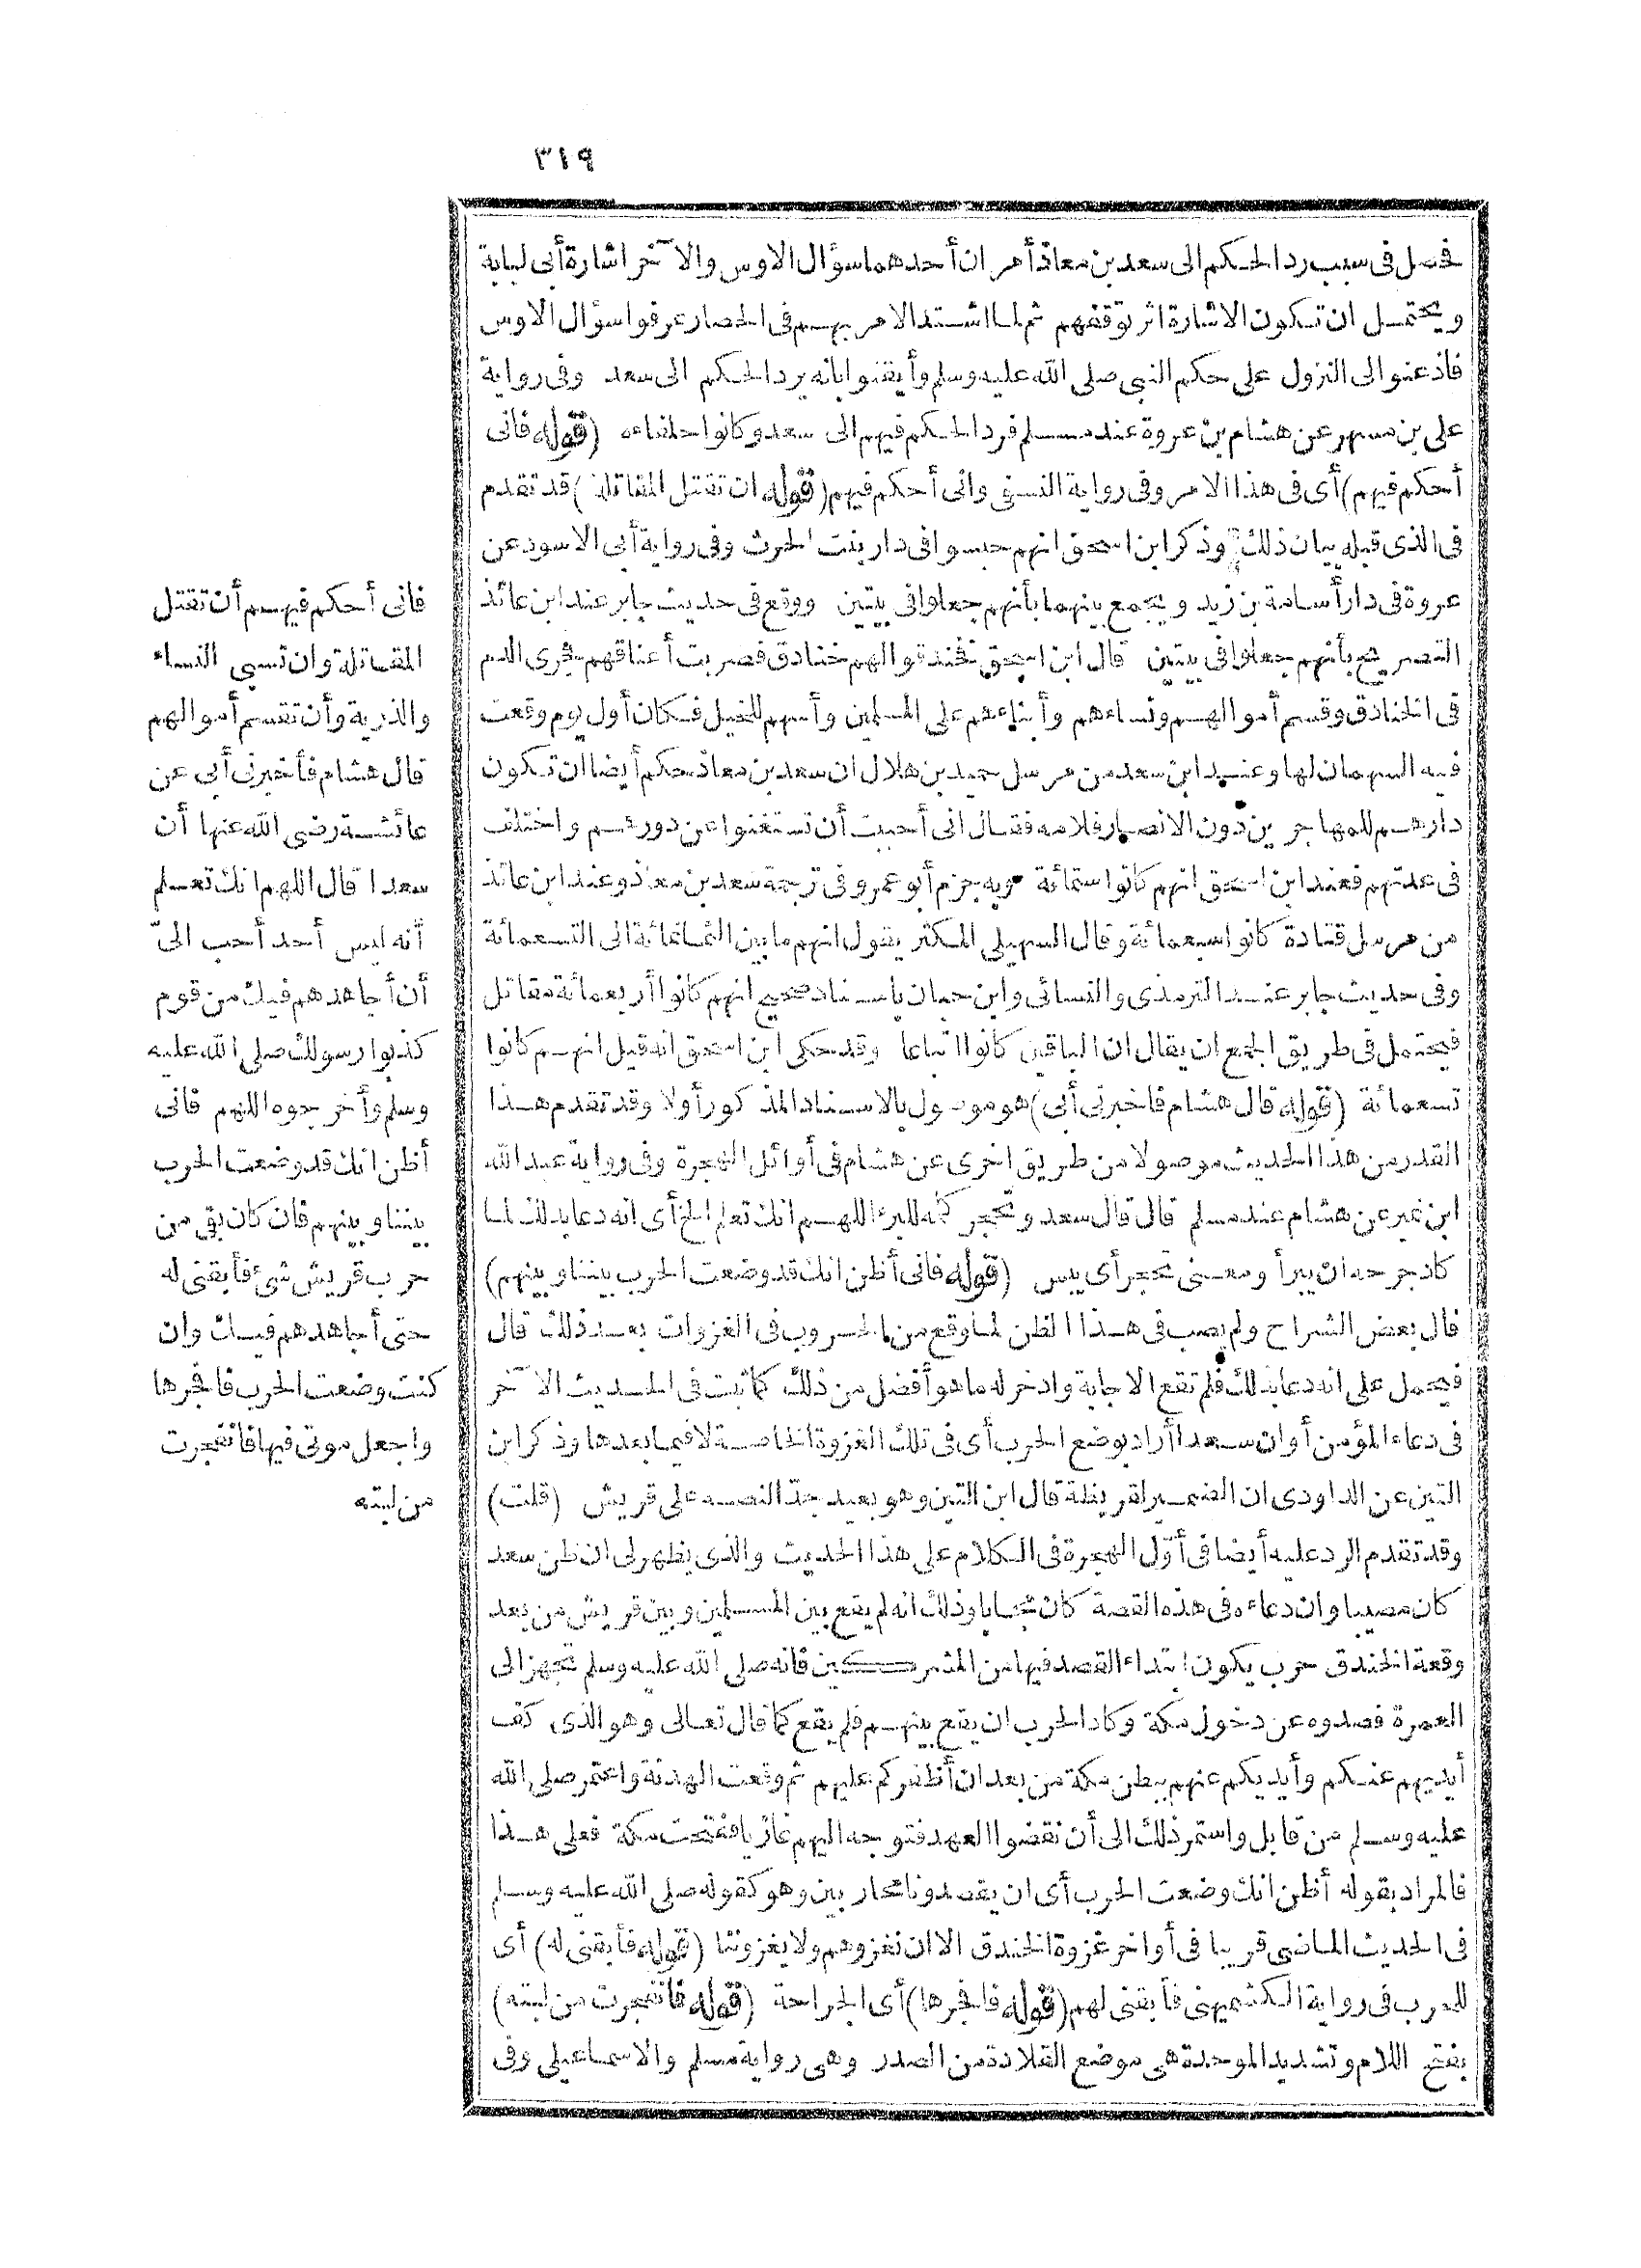 ٣١٩
فحصل فى سبب رد الحكم الى سعد بن معاذ أمران أحدهما سؤال الاوس والآخر اشارة أبى لبابة
ويحتمل ان تكون الاشارة اثر توقفهم ثم لما اشتد الامر بهم فى الحصار عرفوا سؤال الاوس
فاذعنوا الى النزول على حكم النبى صلى الله عليه وسلم وأيقنوا بانه يرد الحكم الى سعد وفى رواية
على بن مسهر عن هشام بن عروة عند مسلم فرد الحكم فيهم الى سعد وكانوا حلفاءه (قوله فانى
أحكم فيهم) أى فى هذا الامر وفى رواية النسفى وانى أحكم فيهم (قوله ان تقتل المقاتلة) قد تقدم
فى الذى قبله بيان ذلك وذكر ابن اسحق انهم حبسوا فى دار بنت الحرث وفى رواية أبى الاسود عن
عروة فى دار أسامة بن زيد ويجمع بينهما بأنهم جعلوا فى بيتين ووقع فى حديث جابر عند ابن عائذ
التصريح بأنهم جعلوا فى بيتين قال ابن اسحق فخندقوا لهم خنادق فضربت أعناقهم فجرى الدم
فى الخنادق وقسم أموالهم ونساءهم وأبناءهم على المسلمين وأسهم للخيل فكان أول يوم وقعت
فيه السهمان لها وعند ابن سعد من مرسل حميد بن هلال ان سعد بن معاذ حكم أيضا ان تكون
دارهم للمهاجرين دون الانصار فلامه فقال انى أحببت أن تستغنوا عن دورهم واختلف
فى عدتهم فعند ابن اسحق انهم كانوا ستمائة وبه جزم أبو عمرو فى ترجمة سعد بن معاذ وعند ابن عائذ
من مرسل قتادة كانوا سبعمائة وقال السهيلى المكثر يقول انهم ما بين الثمانمائة الى التسعمائة
وفى حديث جابر عند الترمذى والنسائى وابن حبان باسناد صحيح انهم كانوا أربعمائة مقاتل
فيحتمل فى طريق الجمع ان يقال ان الباقين كانوا اتباعا وقد حكى ابن اسحق انه قيل انهم كانوا
تسعمائة (قوله قال هشام فاخبرنى أبى) هو موصول بالاسناد المذكور أولا وقد تقدم هذا
القدر من هذا الحديث موصولا من طريق اخرى عن هشام فى أوائل الهجرة وفى رواية عبد الله
ابن نمير عن هشام عند مسلم قال قال سعد وتحجر كلمه للبرء اللهم انك تعلم الخ أى انه دعا بذلك لما
كاد جرحه ان يبرأ ومعنى تحجر أى يبس (قوله فانى أظن انك قد وضعت الحرب بيننا وبينهم)
قال بعض الشراح ولم يصب فى هذا الظن لما وقع من الحروب فى الغزوات بعد ذلك قال
فيحمل على انه دعا بذلك فلم تقع الاجابة وادخر له ما هو أفضل من ذلك كما ثبت فى الحديث الآخر
فى دعاء المؤمن أو ان سعدا أراد بوضع الحرب أى فى تلك الغزوة الخاصة لا فيما بعدها وذكر ابن
التين عن الداودى ان الضمير لقريظة قال ابن التين وهو بعيد جدّا لنصه على قريش (قلت)
وقد تقدم الرد عليه أيضا فى أوّل الهجرة فى الكلام على هذا الحديث والذى يظهر لى ان ظن سعد
كان مصيبا وان دعاءه فى هذه القصة كان مجابا وذلك انه لم يقع بين المسلمين وبين قريش من بعد
وقعة الخندق حرب يكون ابتداء القصد فيها من المشركين فانه صلى الله عليه وسلم تجهز الى
العمرة فصدوه عن دخول مكة وكاد الحرب ان يقع بينهم فلم يقع كما قال تعالى وهو الذى كف
أيديهم عنكم وأيديكم عنهم ببطن مكة من بعد ان أظفركم عليهم ثم وقعت الهدنة واعتمر صلى الله
عليه وسلم من قابل واستمر ذلك الى أن نقضوا العهد فتوجه اليهم غازيا ففتحت مكة فعلى هذا
فالمراد بقوله أظن انك وضعت الحرب أى ان يقصدونا محاربين وهو كقوله صلى الله عليه وسلم
فى الحديث الماضى قريبا فى أواخر غزوة الخندق الان نغزوهم ولا يغزوننا (قوله فأبقنى له) أى
للحرب فى رواية الكشميهنى فأبقنى لهم (قوله فافجرها) أى الجراحة (قوله فانفجرت من لبته)
بفتح اللام وتشديد الموحدة هى موضع القلادة من الصدر وهى رواية مسلم والاسماعيلى وفى
فانى أحكم فيهم أن تقتل
المقاتلة وان تسبى النساء
والذرية وأن تقسم أموالهم
قال هشام فأخبرنى أبى عن
عائشة رضى الله عنها أن
سعدا قال اللهم انك تعلم
أنه ليس أحد أحب الىّ
أن أجاهدهم فيك من قوم
كذبوا رسولك صلى الله عليه
وسلم وأخرجوه اللهم فانى
أظن انك قد وضعت الحرب
بيننا وبينهم فان كان بقى من
حرب قريش شئ فأبقنى له
حتى أجاهدهم فيك وان
كنت وضعت الحرب فافجرها
واجعل موتى فيها فانفجرت
من لبته